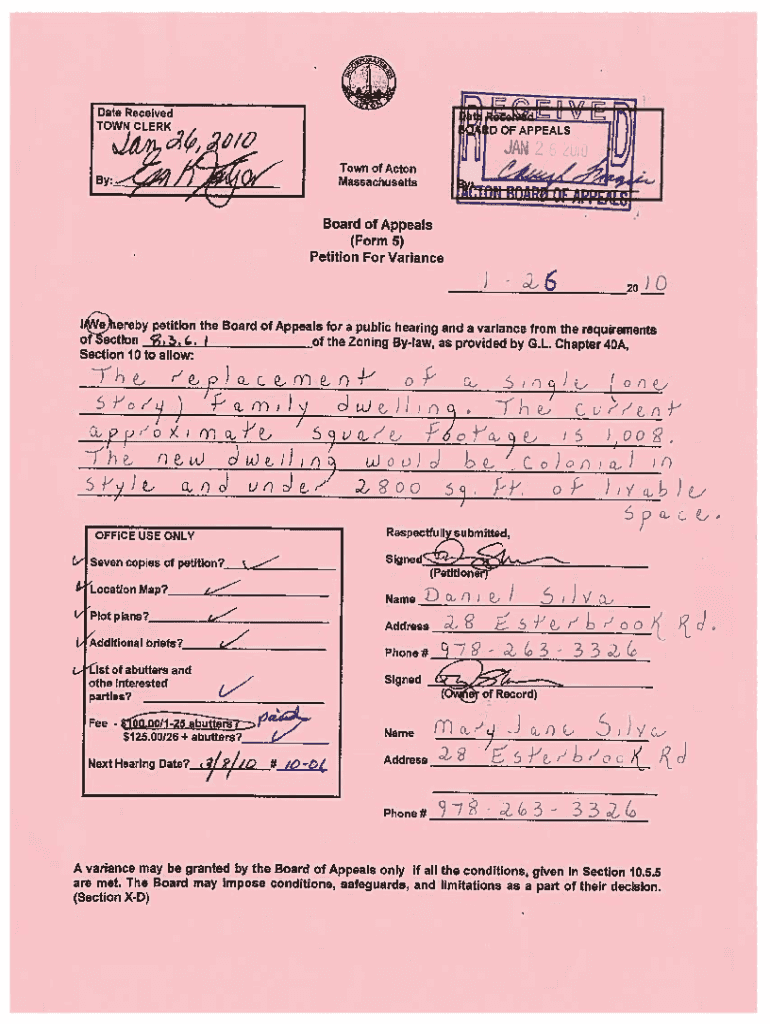 INCORPORATED
ACTON
Date Received
TOWN CLERK
Jan 26, 2010
By:
RECEIVED
Date Received
BOARD OF APPEALS
JAN 26 2010
By: Cheryl Frazier
ACTON BOARD OF APPEALS
Town of Acton
Massachusetts
Board of Appeals
(Form 5)
Petition For Variance
1 - 26 2010
I/We hereby petition the Board of Appeals for a public hearing and a variance from the requirements
of Section 8.3.6.1 of the Zoning By-law, as provided by G.L. Chapter 40A,
Section 10 to allow:
The replacement of a single (one
story) family dwelling. The current
approximate square footage is 1,008.
The new dwelling would be colonial in
style and under 2800 sq. ft. of livable
space.
OFFICE USE ONLY
Seven copies of petition?
Location Map?
Plot plans?
Additional briefs?
List of abutters and
othe interested
parties?
Fee - $100.00/1-25 abutters? paid
$125.00/26 + abutters?
Next Hearing Date? 3/8/10 # 10-01
Respectfully submitted,
Signed
(Petitioner)
Name Daniel Silva
Address 28 Esterbrook Rd.
Phone # 978-263-3326
Signed
(Owner of Record)
Name Mary Jane Silva
Address 28 Esterbrook Rd
Phone # 978-263-3326
A variance may be granted by the Board of Appeals only if all the conditions, given in Section 10.5.5
are met. The Board may impose conditions, safeguards, and limitations as a part of their decision.
(Section X-D)